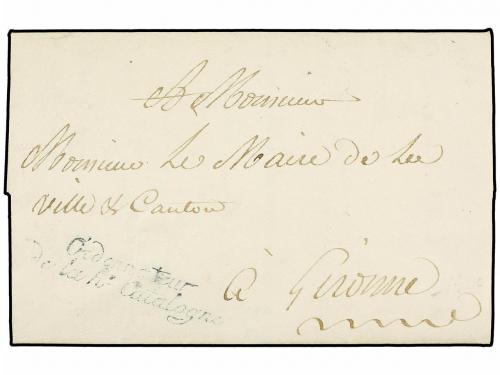 A Monsieur
Monsieur Le Maire de La
ville & Canton
Ordonnateur
de la hte Catalogne
à Gironne